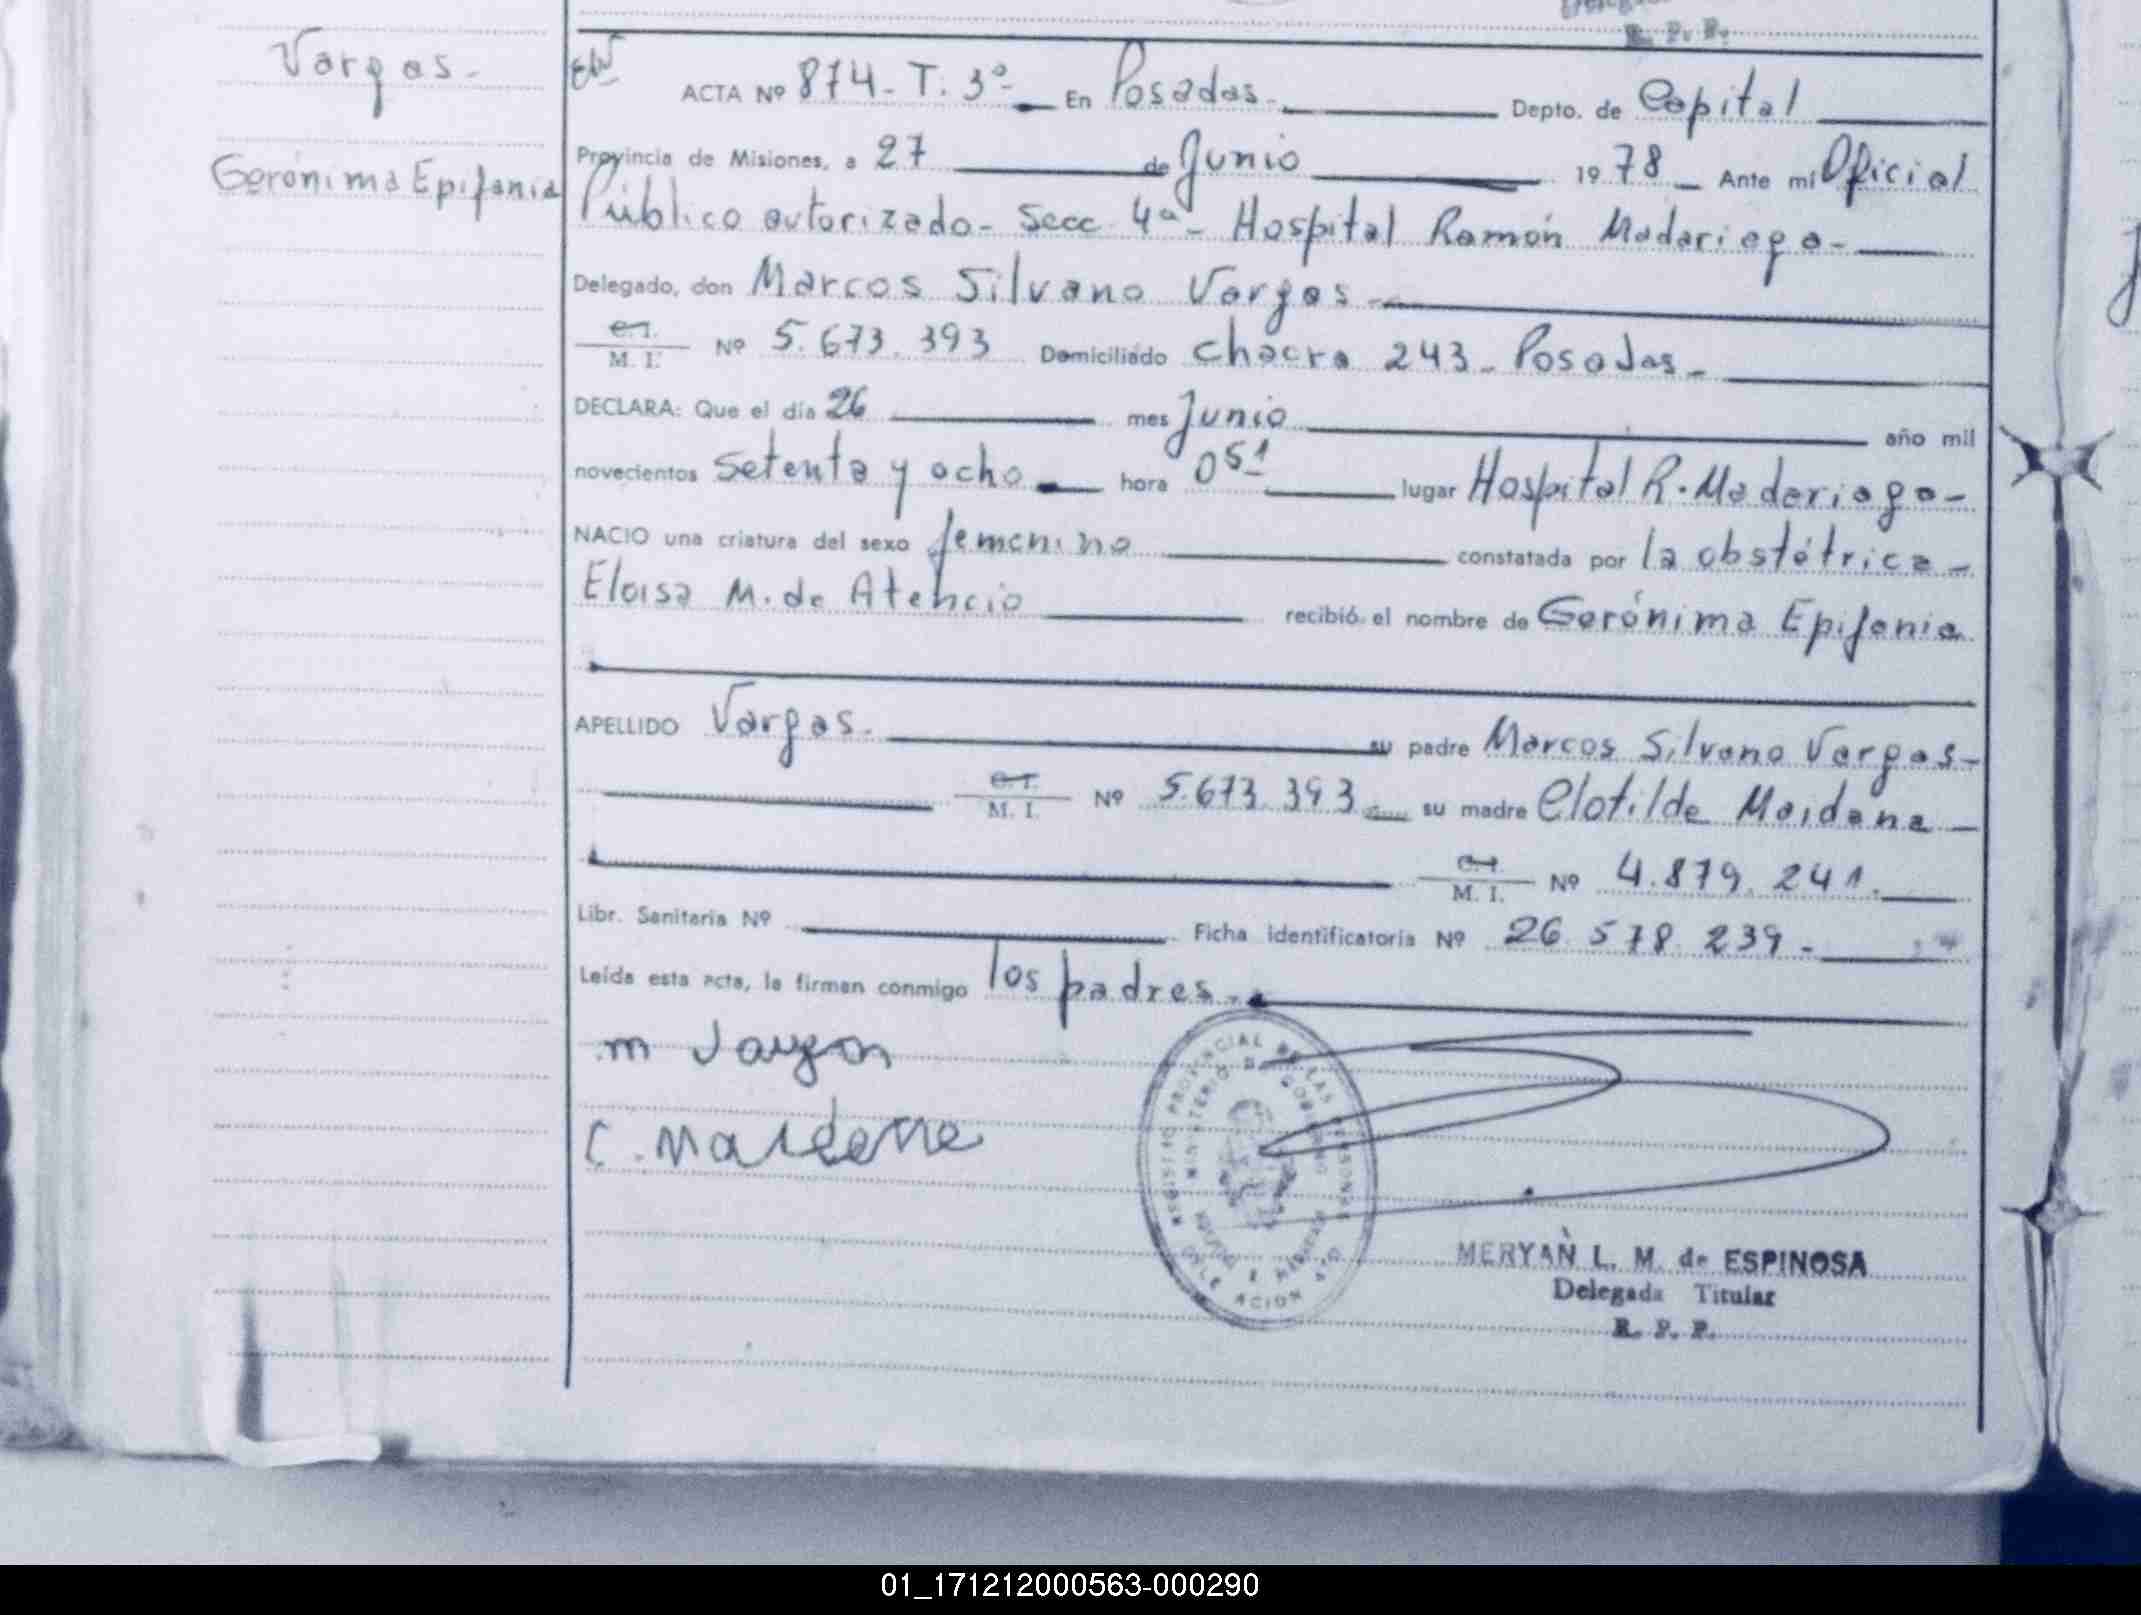 R. P. P.
Vargas.-
ACTA Nº 874- T. 3º- En Posadas.- Depto. de Capital
Gerónima Epifania
Provincia de Misiones, a 27 de Junio 1978 Ante mí Oficial
Público autorizado- Secc. 4ª- Hospital Ramón Madariaga-
Delegado, don Marcos Silvano Vargas-
C.I. M. I. Nº 5.673.393 Domiciliado Chacra 243- Posadas-
DECLARA: Que el día 26 mes Junio año mil
novecientos setenta y ocho hora 05 lugar Hospital R. Madariaga-
NACIO una criatura del sexo femenino constatada por la obstétrica-
Eloisa M. de Atencio recibió el nombre de Gerónima Epifania
APELLIDO Vargas.- su padre Marcos Silvano Vargas-
C.I. M. I. Nº 5.673.393 su madre Clotilde Maidana-
C.I. M. I. Nº 4.879.241.
Libr. Sanitaria Nº Ficha identificatoria Nº 26.578.239-
Leída esta acta, la firman conmigo los padres.-
m Vargas
C. Maidana
REGISTRO PROVINCIAL DE LAS PERSONAS
MINISTERIO DE GOBIERNO
MERYAN L. M. de ESPINOSA
Delegada Titular
R. P. P.
01_171212000563-000290